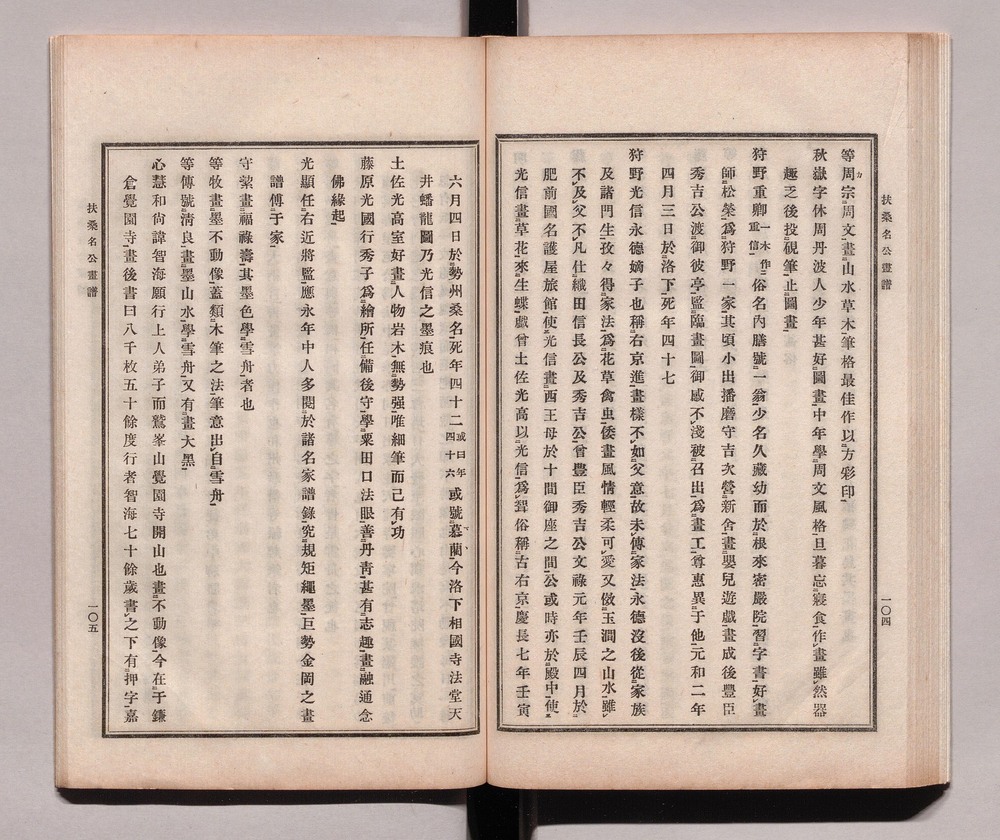 扶桑名公畫譜
一〇四
等周宗周文畫山水草木筆格最佳作以方彩印
秋嶽字休周丹波人少年甚好圖畫中年學周文風格旦暮忘寢食作畫雖然器
趣乏後投硯筆止圖畫
狩野重卿一木作重信俗名內膳號一翁少名久藏幼而於根來密嚴院習字書好畫
師松榮爲狩野一家其頃小出播磨守吉次營新舍畫嬰兒遊戲畫成後豐臣
秀吉公渡御彼亭監臨畫圖御感不淺被召出爲畫工尊惠異于他元和二年
四月三日於洛下死年四十七
狩野光信永德嫡子也稱右京進畫樣不如父意故未傳家法永德沒後從家族
及諸門生孜々得家法爲花草禽虫倭畫風情輕柔可愛又倣玉澗之山水雖
不及父不凡仕織田信長公及秀吉公曾豐臣秀吉公文祿元年壬辰四月於
肥前國名護屋旅館使光信畫西王母於十間御座之間公或時亦於殿中使
光信畫草花來生蝶戲曾土佐光高以光信爲聟俗稱古右京慶長七年壬寅
六月四日於勢州桑名死年四十二或曰年四十六或號慕蘭今洛下相國寺法堂天
井蟠龍圖乃光信之墨痕也
土佐光高室好畫人物岩木無勢强唯細筆而已有功
藤原光國行秀子爲繪所任備後守學粟田口法眼善丹靑甚有志趣畫融通念
佛緣起
光顯任右近將監應永年中人多閱於諸名家譜錄究規矩繩墨巨勢金岡之畫
譜傳于家
守蓂畫福祿壽其墨色學雪舟者也
等牧畫墨不動像蓋類木筆之法筆意出自雪舟
等傳號淸良畫墨山水學雪舟又有畫大黑
心慧和尙諱智海願行上人弟子而鷲峯山覺園寺開山也畫不動像今在于鎌
倉覺園寺畫後書曰八千枚五十餘度行者智海七十餘歲書之下有押字嘉
扶桑名公畫譜
一〇五